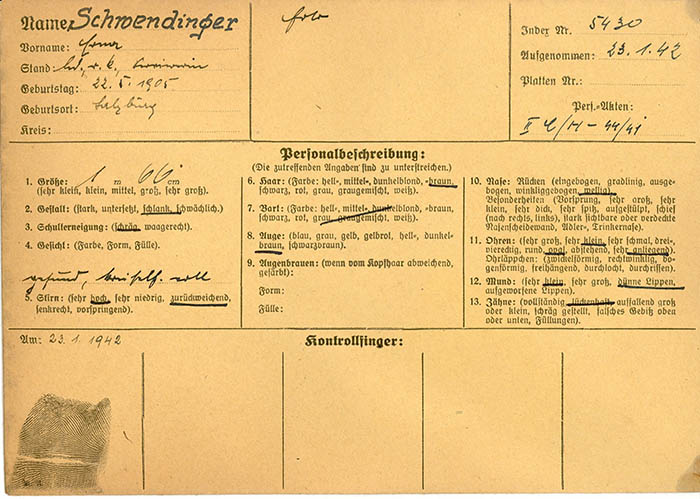 Name: Schwendinger
Vorname: Erna
Stand: led., r. k.,
Geburtstag: 22. 5. 1905
Geburtsort: Salzburg
Kreis:
Foto
Index Nr. 5430
Aufgenommen: 23.1.42
Platten Nr.:
Pers.-Akten:
Personalbeschreibung:
(Die zutreffenden Angaben sind zu unterstreichen.)
1. Größe: 1 m 66 cm
(sehr klein, klein, mittel, groß, sehr groß).
2. Gestalt: (stark, untersetzt, schlank, schwächlich).
3. Schulterneigung: (schräg, waagerecht).
4. Gesicht: (Farbe, Form, Fülle).
gesund, voll
5. Stirn: (sehr hoch, sehr niedrig, zurückweichend,
senkrecht, vorspringend).
6. Haar: (Farbe: hell-, mittel-, dunkelblond, -braun,
schwarz, rot, grau, graugemischt, weiß).
7. Bart: (Farbe: hell-, mittel-, dunkelblond, -braun,
schwarz, rot, grau, graugemischt, weiß).
8. Auge: (blau, grau, gelb, gelbrot, hell-, dunkel-
braun, schwarzbraun).
9. Augenbrauen: (wenn vom Kopfhaar abweichend,
gefärbt):
Form:
Fülle:
10. Nase: Rücken (eingebogen, gradlinig, ausge-
bogen, winkliggebogen, wellig).
Besonderheiten (Vorsprung, sehr groß, sehr
klein, sehr dick, sehr spitz, aufgestülpt, schief
(nach rechts, links), stark sichtbare oder verdeckte
Nasenscheidewand, Adler-, Trinkernase).
11. Ohren: (sehr groß, sehr klein, sehr schmal, drei-
viereckig, rund, oval, abstehend, sehr anliegend).
Ohrläppchen: (zwickelförmig, rechtwinklig, bo-
genförmig, freihängend, durchlocht, durchrissen).
12. Mund: (sehr klein, sehr groß, dünne Lippen,
aufgeworfene Lippen).
13. Zähne: (vollständig, lückenhaft, auffallend groß
oder klein, schräg gestellt, falsches Gebiß oben
oder unten, Füllungen).
Am: 23. 1. 1942
Kontrollfinger: